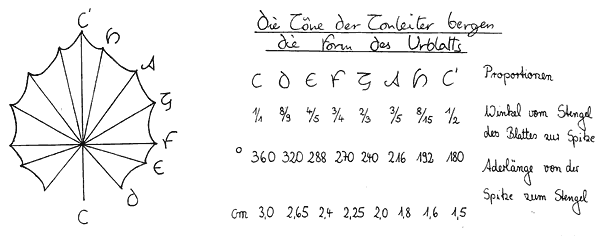 Die Töne der Tonleiter bergen
die Form des Urblatts
C D E F G A H C'
Proportionen
1/1 8/9 4/5 3/4 2/3 3/5 8/15 1/2
Winkel vom Stengel
des Blattes zur Spitze
° 360 320 288 270 240 216 192 180
Aderlänge von der
Spitze zum Stengel
cm 3,0 2,65 2,4 2,25 2,0 1,8 1,6 1,5
C'
H
A
G
F
E
D
C